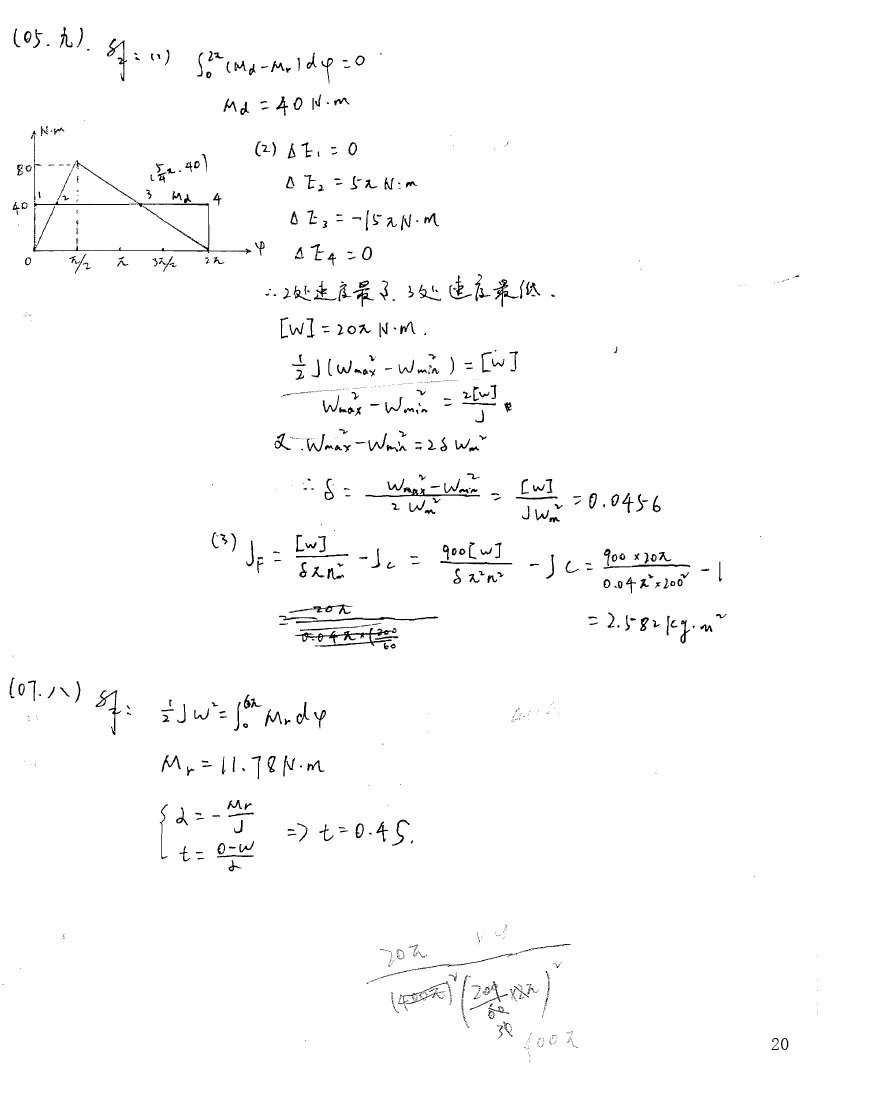 (05.九). 解: (1) ∫₀^{2π}(Md-Mr)dφ=0
Md=40N·m
N·m
80
40
1 2 3 Md 4
(5/4π.40)
0 π/2 π 3π/2 2π φ
(2) ΔE₁=0
ΔE₂=5πN·m
ΔE₃=-15πN·m
ΔE₄=0
∴2处速度最高.3处速度最低.
[W]=20πN·m.
1/2 J(Wmax²-Wmin²)=[W]
Wmax²-Wmin²=2[W]/J
又∵Wmax²-Wmin²=2δWm²
∴δ=(Wmax²-Wmin²)/(2Wm²)=[W]/(JWm²)=0.0456
(3) J_F=[W]/(δπnm²)-Jc=900[W]/(δπ²n²)-Jc=(900×20π)/(0.04π²×200²)-1
=2.582kg·m²
(07.八) 解: 1/2JW²=∫₀^{6π}Mrdφ
Mr=11.78N·m
{α=-Mr/J
t=(0-W)/α => t=0.4S.
20π
20